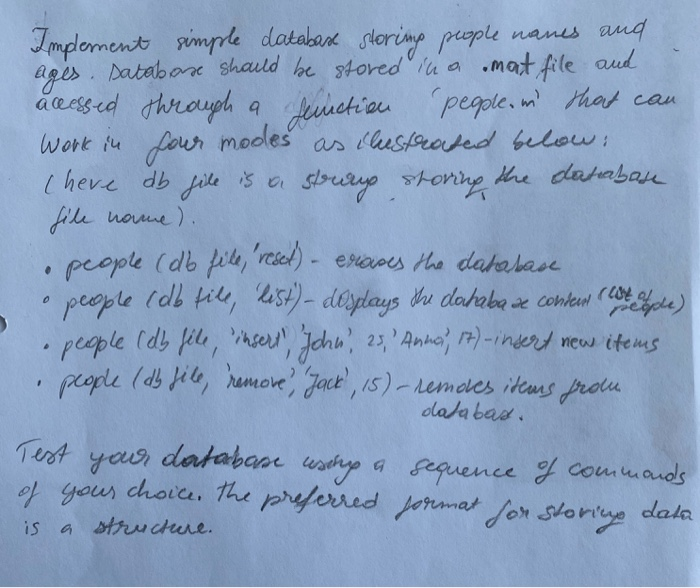 Implement simple database storing people names and
ages. Database should be stored in a .mat file and
accessed through a function 'people.m' that can
work in four modes as illustrated below:
(here db file is a string storing the database
file name).
• people (db file, 'reset') - erases the database
• people (db file, 'list') - displays the database content (list of people)
• people (db file, 'insert', 'John', 25, 'Anna', 17) - insert new items
• people (db file, 'remove', 'Jack', 15) - removes items from
database.
Test your database using a sequence of commands
of your choice. The preferred format for storing data
is a structure.